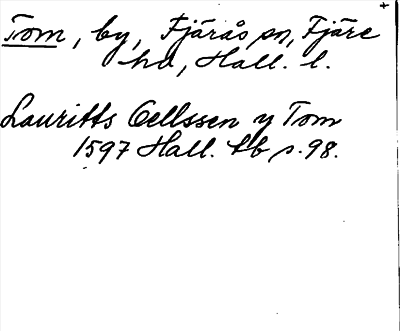 Tom, by, Fjärås sn, Fjäre
hd, Hall. l.
Lauritts Oellssen y Tom
1597 Hall. tb s. 98.